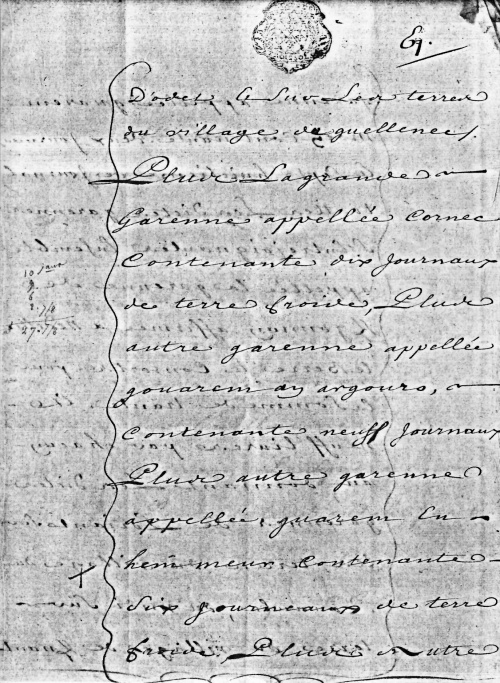 61.
D'odet & Sur Les terres
du village de quellenec /.
Plus Lagrande
Garenne appellée Cornec
Contenante dix Journaux
de terre froide, Plus
autre garenne appellée
gouarem an argouro,
Contenante neuff Journaux
Plus autre garenne
appellée, guarem
hem meur Contenante
Six journeaux de terre
froide, Plus Autre
10 jour
9.
6
2. 1/8
27. 1/8
X